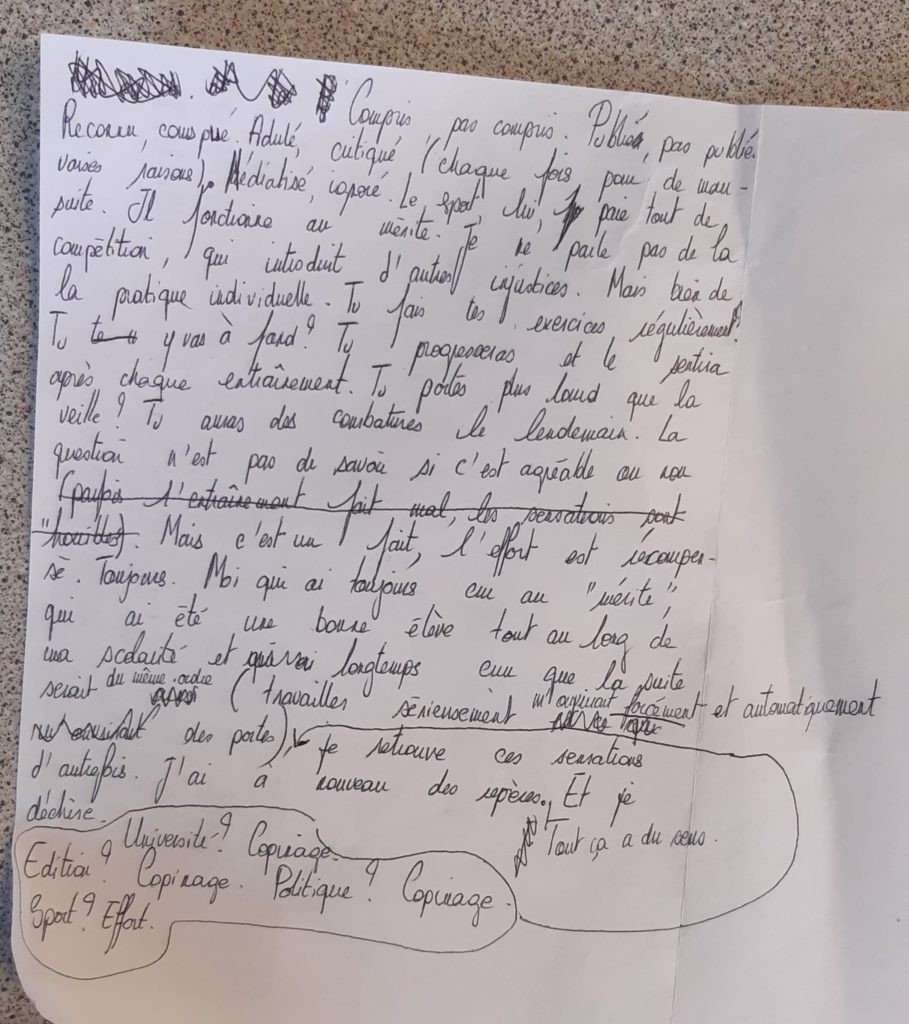 Compris, pas compris. Publié, pas publié.
Reconnu, conspué. Adulé, critiqué (chaque fois pour de mau-
vaises raisons). Médiatisé, ignoré. Le sport, lui, paie tout de
suite. Il fonctionne au mérite. Je ne parle pas de la
compétition, qui introduit d'autres injustices. Mais bien de
la pratique individuelle. Tu fais tes exercices régulièrement?
Tu y vas à fond? Tu progresseras et le sentira
après chaque entraînement. Tu portes plus lourd que la
veille? Tu auras des courbatures le lendemain. La
question n'est pas de savoir si c'est agréable ou non
(parfois l'entraînement fait mal, les sensations sont
"horribles). Mais c'est un fait, l'effort est récompen-
sé. Toujours. Moi qui ai toujours cru au "mérite",
qui ai été une bonne élève tout au long de
ma scolarité et longtemps cru que la suite
serait du même ordre (travailler sérieusement m'ouvrirait forcément et automatiquement
des portes), je retrouve ces sensations
d'autrefois. J'ai à nouveau des repères. Et je
déchire. Tout ça a du sens.
Université? Copinage.
Edition? Copinage. Politique? Copinage.
Sport? Effort.